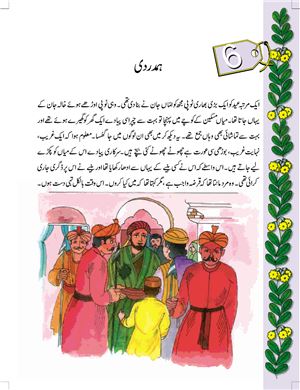 6
ہمدردی
ایک مرتبہ عید کو ایک بڑی بھاری ٹوپی مجھ کو اماں جان نے بنا دی تھی۔ وہی ٹوپی اوڑھے ہوئے خالہ جان کے
یہاں جاتا تھا۔ میاں مسکین کے کوچے میں پہنچا تو بہت سے چپراسی پیادے ایک گھر کو گھیرے ہوئے تھے اور
بہت سے تماشائی بھی وہاں جمع تھے۔ یہ دیکھ کر میں بھی ان لوگوں میں جا گھسا۔ معلوم ہوا کہ ایک
نہایت غریب، بوڑھی سی عورت ہے چھوٹے چھوٹے کئی بچے ہیں۔ سرکاری پیادے اس کے میاں کو پکڑے
لیے جاتے ہیں۔ اس واسطے کہ اس نے کسی بنیے کے یہاں سے ادھار کھایا تھا اور بنیے نے اس پر ڈگری جاری
کرائی تھی۔ وہ مرد مانتا تھا کہ قرضہ واجب ہے، مگر کہتا تھا کہ میں کیا کروں۔ اس وقت بالکل تہی دست ہوں۔